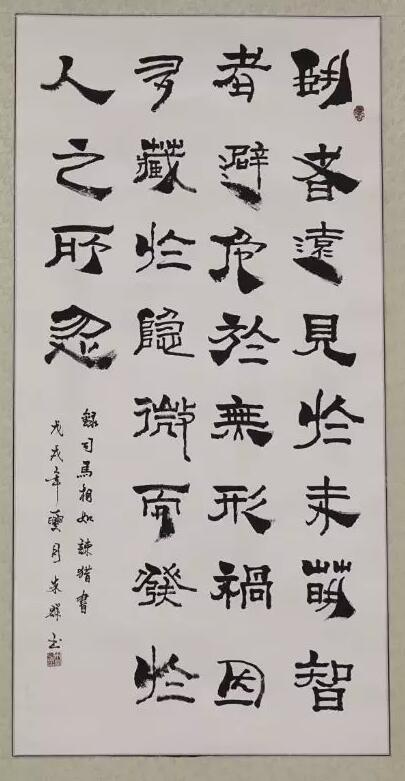 明者遠見於未萌智
者避危於無形禍因
多藏於隱微而發於
人之所忽
錄司馬相如諫猎書
戊戌年夏月朱群书